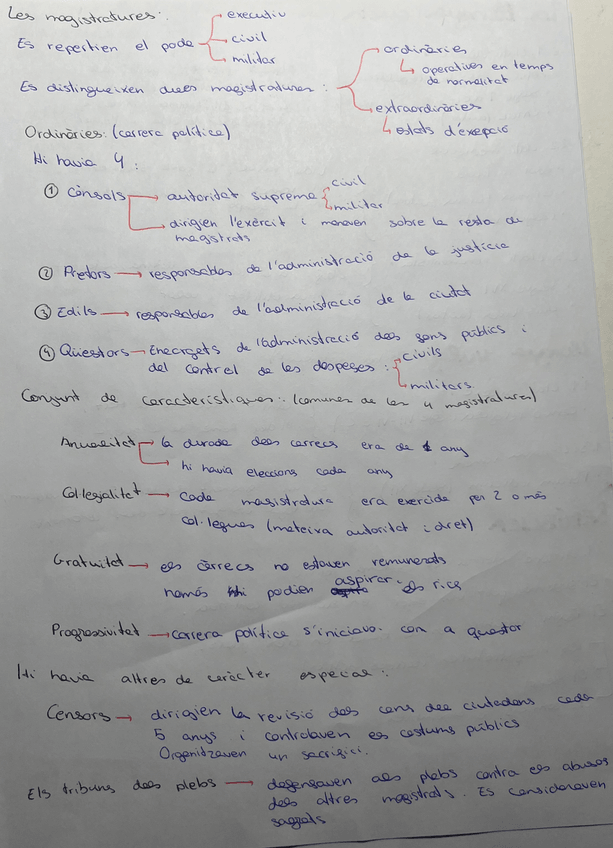 Les magistratures:
Es repertien el pode → executiu
→ civil
→ militar
Es distingueixen dues magistratures: → ordinàries
↳ operatives en temps de normalitat
→ extraordinàries
↳ estats d'exepció
Ordinàries: (carrera política)
Hi havia 4:
① Cònsols → autoritat suprema { civil
militar
→ dirigien l'exèrcit i manaven sobre la resta de
magistrats
② Pretors → responsables de l'administració de la justícia
③ Edils → responsables de l'administració de la ciutat
④ Qüestors → Enecargats de l'administració dels bens públics i
del control de les despeses: { civils
militars
Conjunt de característiques: (comunes de les 4 magistratures)
Anualitat → la durada dels carrecs era de 1 any
→ hi havia eleccions cada any
Col·legialitat → Cada magistratura era exercida per 2 o més
col·legues (mateixa autoritat i dret)
Gratuitat → els càrrecs no estaven remunerats
només hi podien aspirar els rics
Progressivitat → carrera política s'iniciava com a questor
Hi havia altres de caràcter especial:
Censors → dirigien la revisió del cens dels ciutadans cada
5 anys i controlaven els costums públics
Organitzaven un sacrifici.
Els tribuns dels plebs → defensaven als plebs contra els abusos
dels altres magistrats. Es consideraven
sagrats